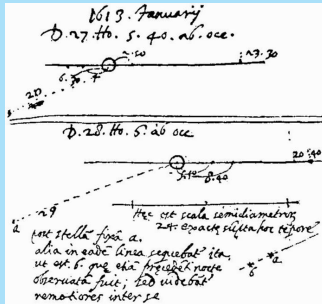 1613. Januarij
D. 27. Ho. 5. 40. ab. occ.
2.50
23.30
6.30.
20
D. 28. Ho. 6 ab occ
20.40
5.10
8.40
29
Haec est scala semidiametrorum
24. exacte
a
post stellā fixā a.
alia in eadē linea sequebat ita,
ut est. b. que etiā precedēti nocte
observata fuit; sed videbat
remotiores inter se
b
a